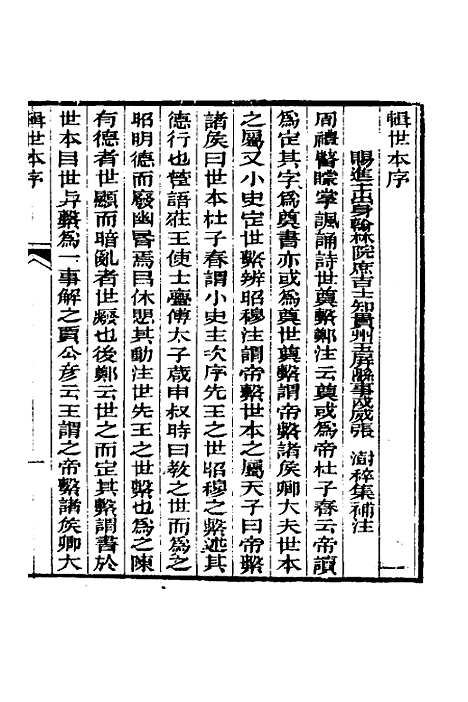 輯世本序
賜進士出身翰林院庶吉士知貴州玉屏縣事武威張澍稡集補注
周禮瞽矇掌諷誦詩世奠繫鄭注云奠或爲帝杜子春云帝讀
爲定其字爲奠書亦或爲奠世奠繫謂帝繫諸侯卿大夫世本
之屬又小史定世繫辨昭穆注謂帝繫世本之屬天子曰帝繫
諸侯曰世本杜子春謂小史主次序先王之世昭穆之繫述其
德行也楚語莊王使士亹傅太子葴申叔時曰教之世而爲之
昭明德而廢幽昬焉㠯休懼其動注世先王之世繫也爲之陳
有德者世顯而暗亂者世廢也後鄭云世之而定其繫謂書於
世本㠯世與繫爲一事解之賈公彥云王謂之帝繫諸侯卿大
輯世本序
一